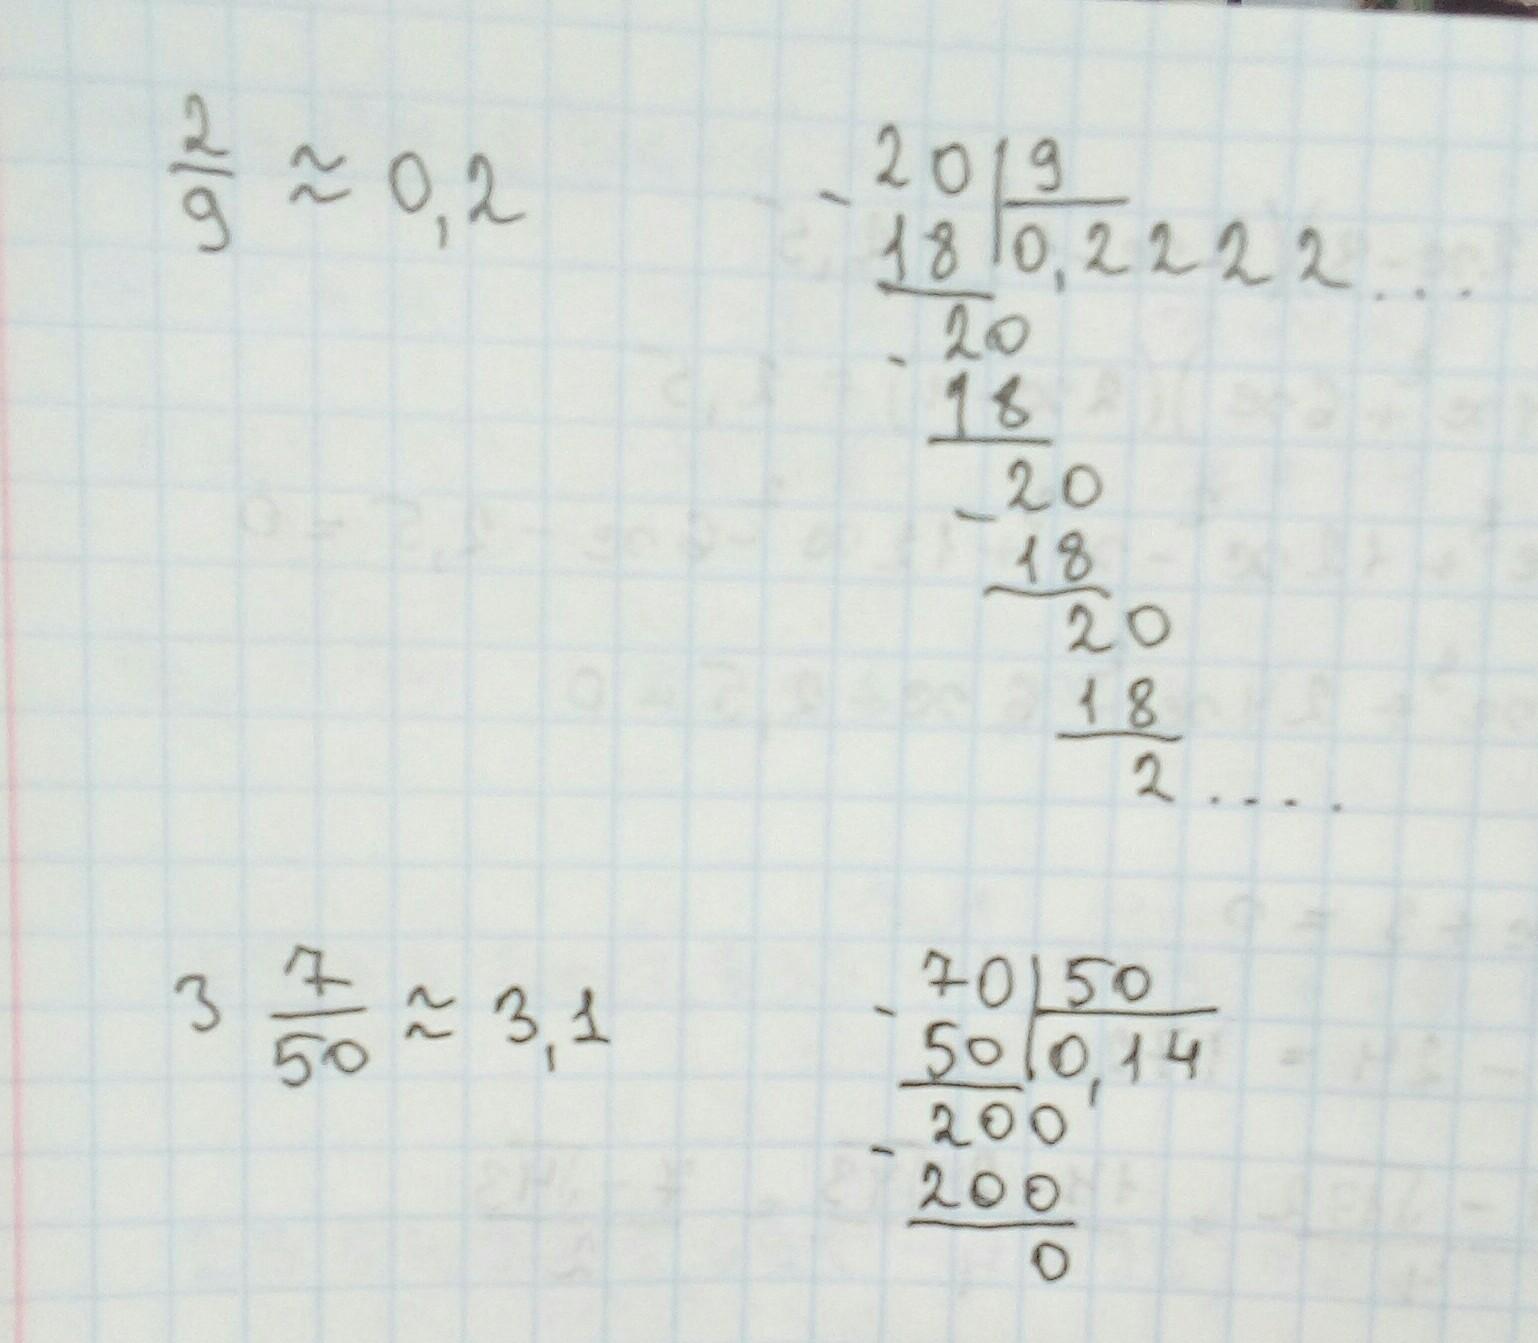 2/9 ≈ 0,2
20 | 9
- 18 | 0,2222...
20
- 18
20
- 18
20
18
2....
3 7/50 ≈ 3,1
70 | 50
- 50 | 0,14
200
- 200
0